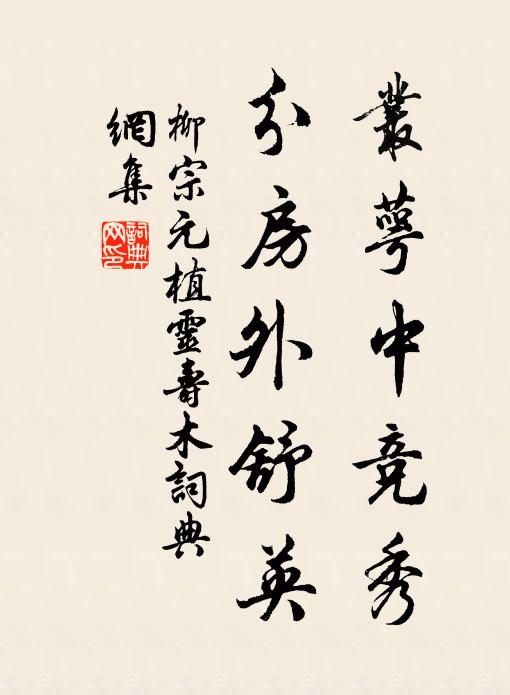 叢萼中竞秀
分房外舒英
柳宗元植靈壽木詞典
網集
詞典
网印